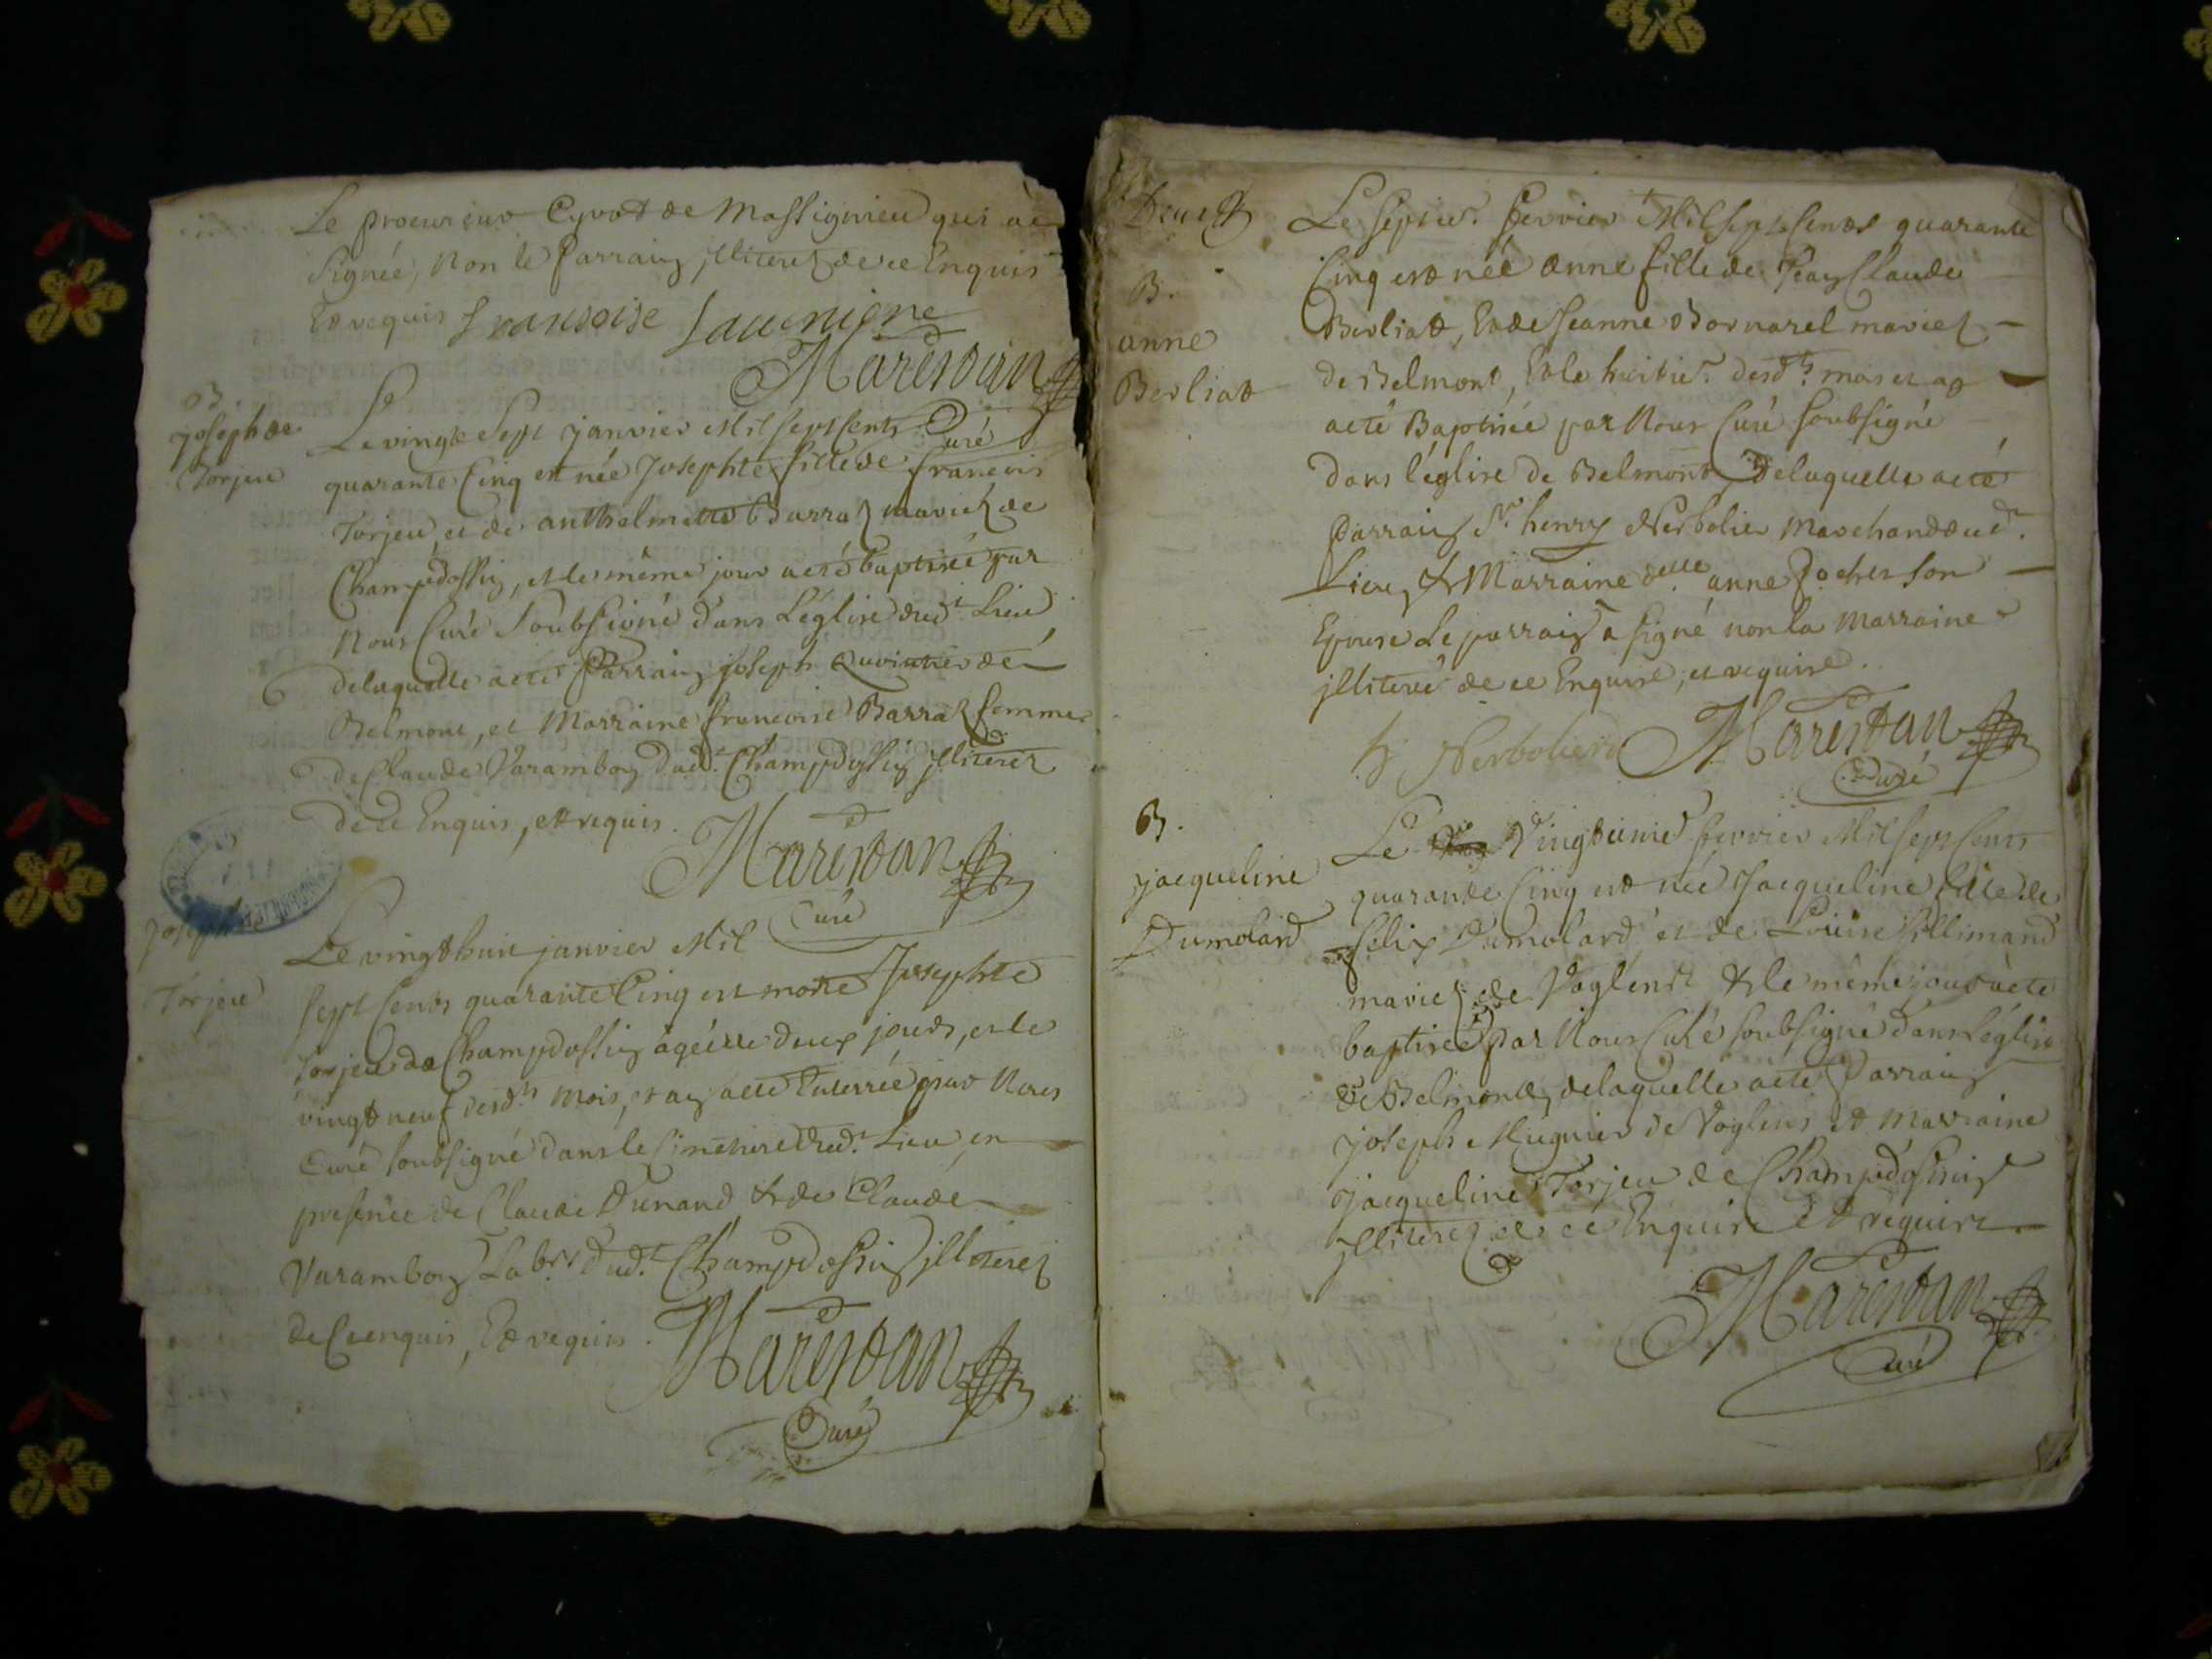 Le procureur Cyvot de Massignieu qui a
signée, non le Parrain jlliterez de ce Enquis
Et requis francoise
Marestan
Curé
B.
josephte
Torjeu
Le vingt Sept janvier Mil sept Cents
quarante Cinq est née Josephte fille de francois
Torjeu, et de anthelmette Barraz mariez de
Champdossin, et le même jour a eté baptisée par
Nous Curé Soubsigné dans L'église dud.t Lieu
de laquelle a eté Parrain joseph de
Belmont, et Marraine francoise Barraz femme
de Claude Varamboz dud.t Champdossin jlliterez
de ce Enquis, et requis.
Marestan
Curé
joseph
Torjeu
Le vingt huit janvier Mil
sept Cents quarante Cinq est morte Josephte
Torjeu de Champdossin agée de deux jours, et le
vingt neuf desd.ts mois, et an a eté Enterrée par Nous
Curé soubsigné dans le Cimetiere dud.t Lieu en
presence de Claude Dunand & de Claude
Varamboz Lab.r dud.t Champdossin jlliterez
de Ce enquis, Et requis.
Marestan
Curé
B.
anne
Berliat
Le septie.r fevrier Mil sept Cents quarante
Cinq est née anne fille de Jean Claude
Berliat, Et de Jeanne Bornarel mariez
de Belmont, Et le huitie.r desd.ts mois et an
a eté Baptisée par Nous Curé soubsigné
dans l'église de Belmont, de laquelle a eté
Parrain S.r henry Nerbolier Marchand dud.t
Lieu, & Marraine d.elle anne son
Epouse Le parrain a signé non la Marraine
jlliteré de ce Enquise, et requise.
h Nerbolier
Marestan
Curé
B.
jacqueline
Dumolard
Le Vingtunie fevrier Mil sept Cents
quarante Cinq est née Jacqueline fille de
felix Dumolard et de Louise Sillimand
mariez de Voglens & le même jour a eté
baptisée par Nous Curé soubsigné dans l'église
de Belmont, de laquelle a eté Parrain
joseph Mugnier de Voglens et Marraine
jacqueline Torjeu de Champdossin
jlliterez de ce Enquis Et requis.
Marestan
Curé